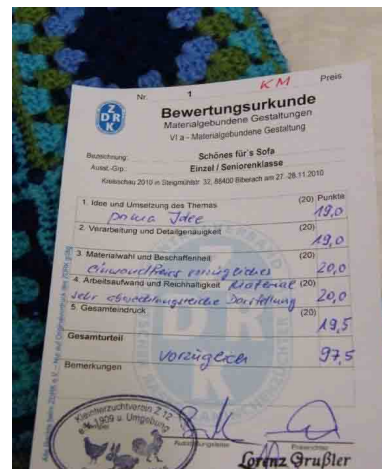 KM
Nr. 1 Preis
Z
DRK
Bewertungsurkunde
Materialgebundene Gestaltungen
VI a - Materialgebundene Gestaltung
Bezeichnung: Schönes für's Sofa
Ausst.-Grp.: Einzel / Seniorenklasse
Kreisschau 2010 in Steigmühlstr. 32, 88400 Biberach am 27.-28.11.2010
1. Idee und Umsetzung des Themas (20) Punkte
prima Idee 19,0
2. Verarbeitung und Detailgenauigkeit (20)
19,0
3. Materialwahl und Beschaffenheit (20)
einwandfreies vorzügliches Material 20,0
4. Arbeitsaufwand und Reichhaltigkeit (20)
sehr abwechlungsreiche Darstellung 20,0
5. Gesamteindruck (20)
19,5
Gesamturteil
vorzüglich 97,5
Bemerkungen
Kleintierzuchtverein Z 12
1909 u. Umgebung
Ausstellungsleiter
Preisrichter
Lorenz Grußler